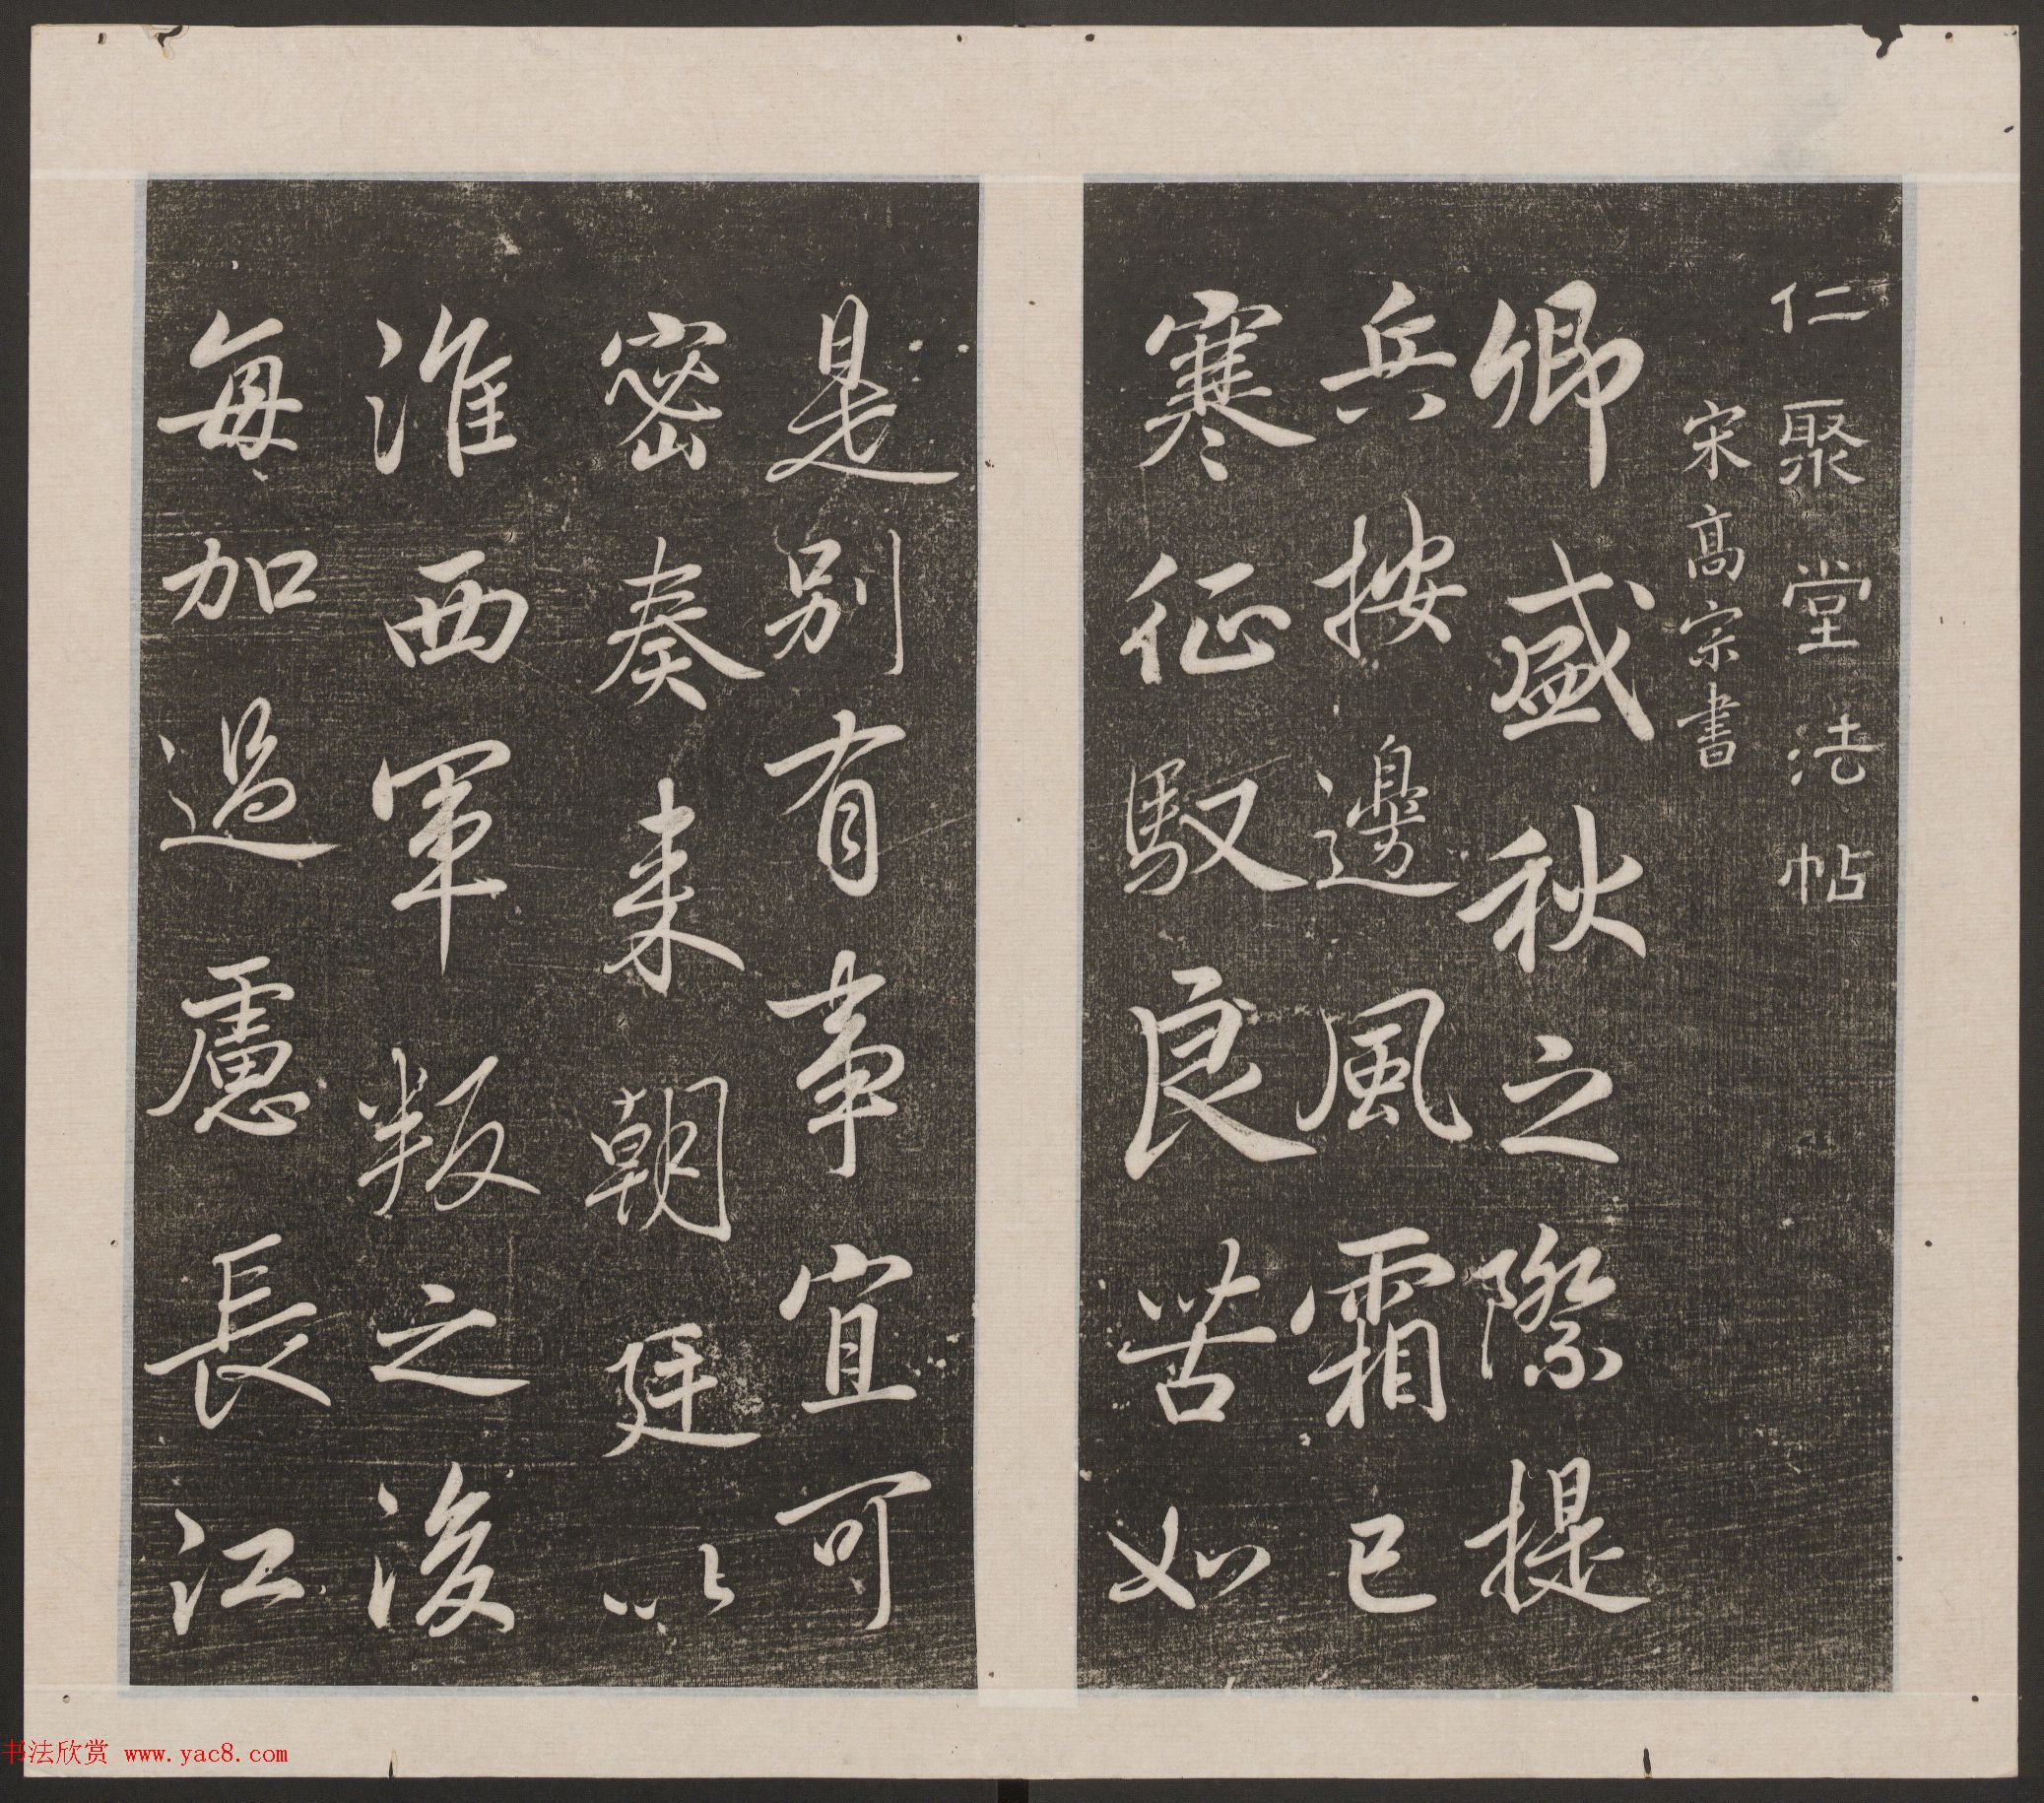 仁聚堂法帖
宋高宗書
卿盛秋之際提
兵按邊風霜已
寒征馭良苦如
是别有事宜可
密奏来朝廷以
淮西軍叛之後
每加過慮長江
书法欣赏 www.yac8.com